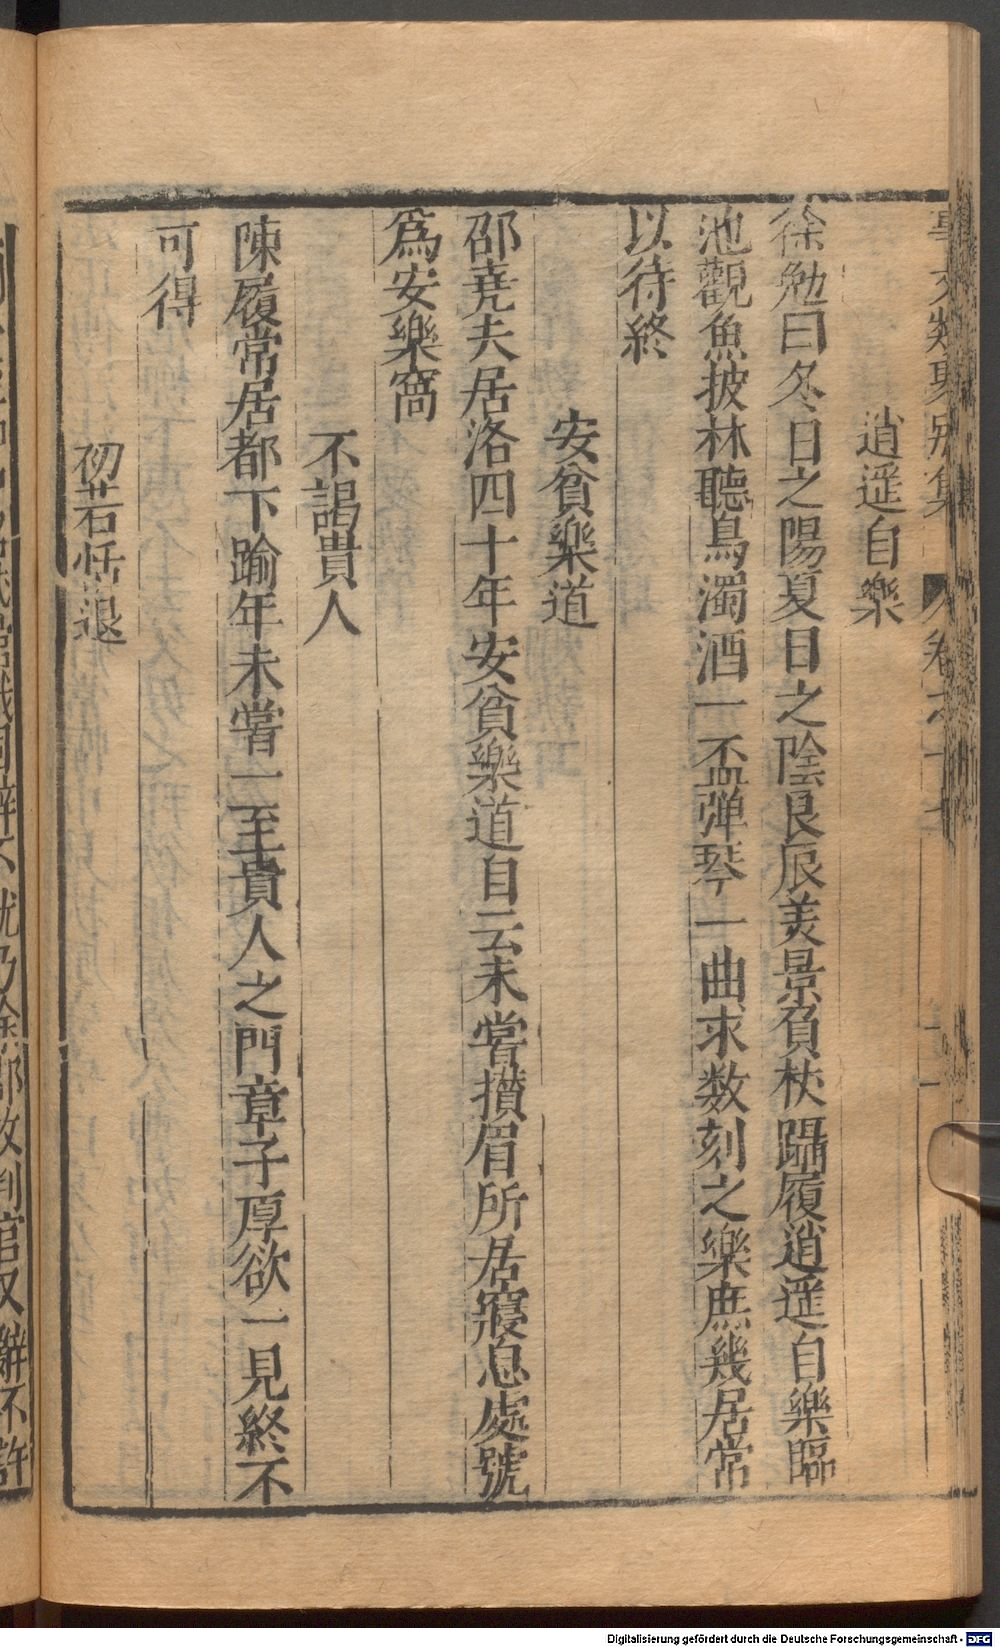 逍遥自樂
徐勉曰冬日之陽夏日之陰良辰美景負杖躡履逍遥自樂臨
池觀魚披林聽鳥濁酒一盃彈琴一曲求数刻之樂庶幾居常
以待終
安貧樂道
邵堯夫居洛四十年安貧樂道自云未嘗攅眉所居寢息處號
爲安樂窩
不謁貴人
陳履常居都下踰年未嘗一至貴人之門章子厚欲一見終不
可得
初若恬退
就乃除 郎改判官又辭不許
Digitalisierung gefördert durch die Deutsche Forschungsgemeinschaft - DFG